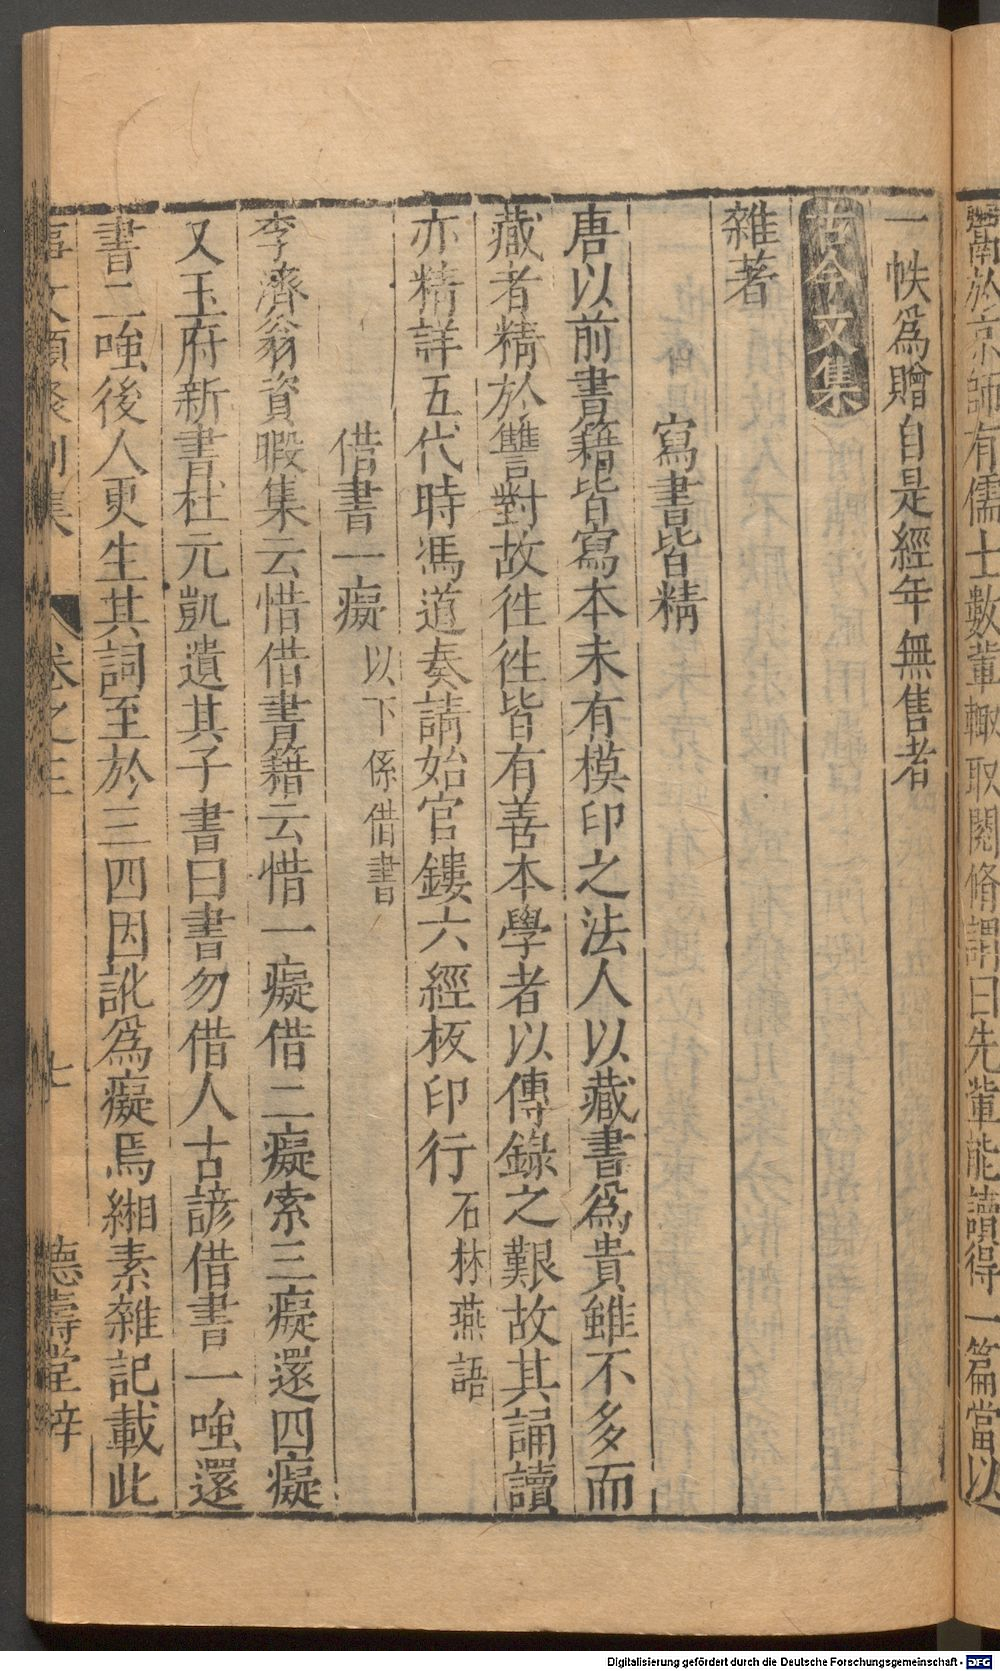 鬻於京師有儒士數輩輙取閱脩謂曰先輩能讀得一篇當以
一帙爲贈自是經年無售者
古今文集
雜著
寫書皆精
唐以前書籍皆寫本未有模印之法人以藏書爲貴雖不多而
藏者精於讐對故徃徃皆有善本學者以傳錄之艱故其誦讀
亦精詳五代時馮道奏請始官鏤六經板印行石林燕語
借書一癡以下係借書
李濟翁資暇集云惜借書籍云惜一癡借二癡索三癡還四癡
又玉府新書杜元凱遺其子書曰書勿借人古諺借書一嗤還
書二嗤後人更生其詞至於三四因訛爲癡焉緗素雜記載此
事文類聚別集 卷之三 七 德壽堂梓
Digitalisierung gefördert durch die Deutsche Forschungsgemeinschaft - DFG